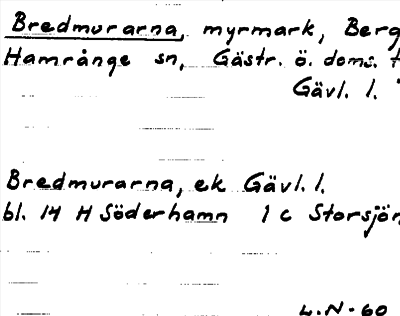 Bredmurarna, myrmark, Berg
Hamrånge sn, Gästr. ö. doms. t
Gävl. l.
Bredmurarna, ek Gävl. l.
bl. 14 H Söderhamn 1 c Storsjön
L.N-60